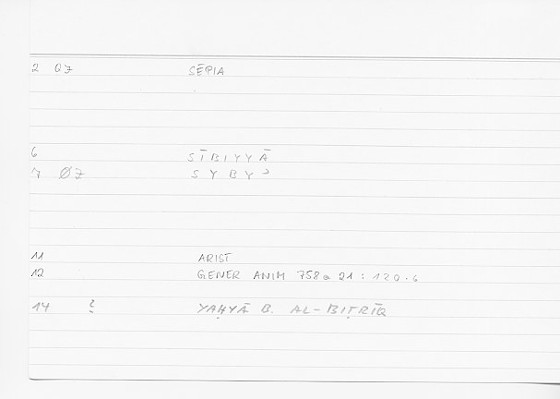 2 07 SĒPIA
6 SĪBIYYĀ
7 Ø7 SYBYʾ
11 ARIST
12 GENER ANIM 758a 21 : 120.6
14 ? YAḤYĀ B. AL-BIṬRĪQ